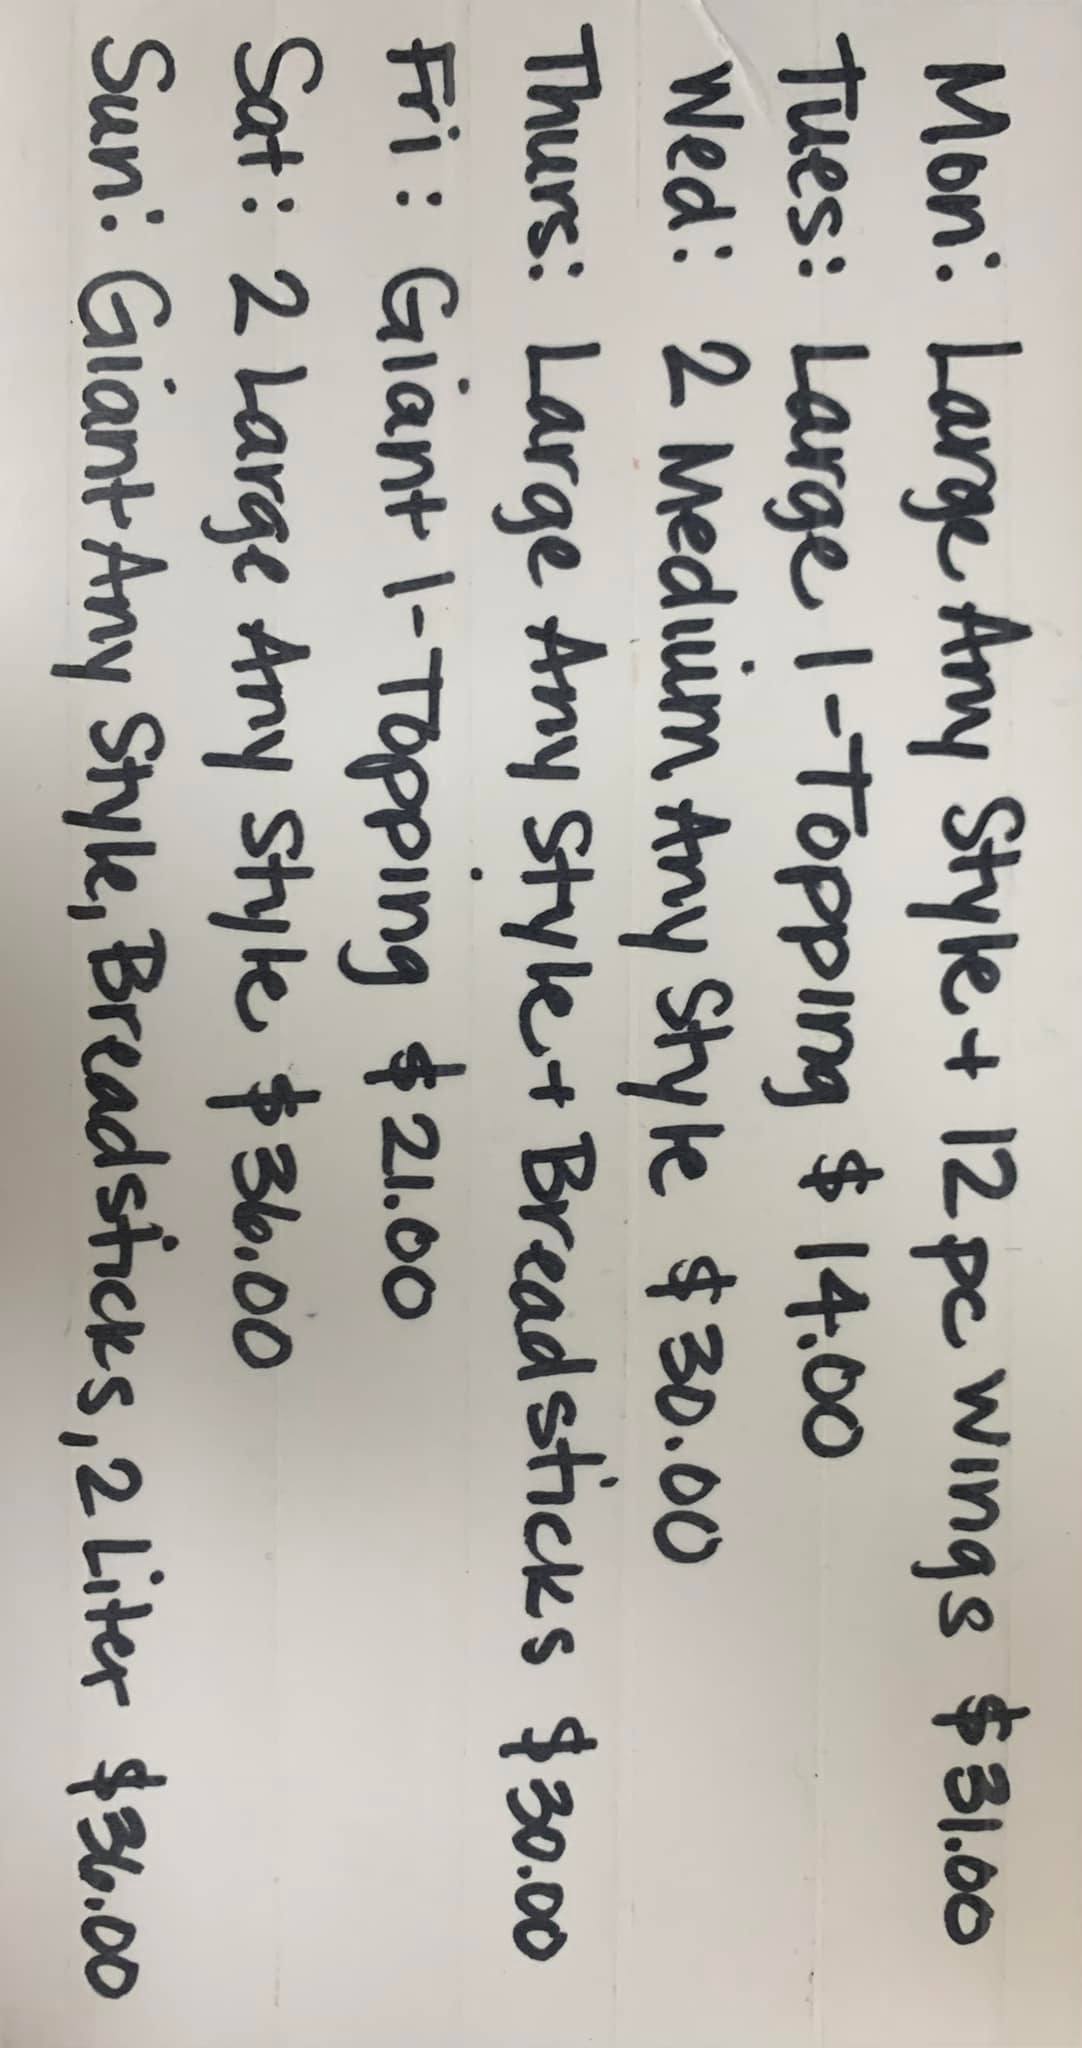 Mon: Large Any Style + 12 pc wings $31.00
Tues: Large 1-Topping $14.00
Wed: 2 Medium Any Style $30.00
Thurs: Large Any Style + Breadsticks $30.00
Fri: Giant 1-Topping $21.00
Sat: 2 Large Any Style $36.00
Sun: Giant Any Style, Breadsticks, 2 Liter $36.00